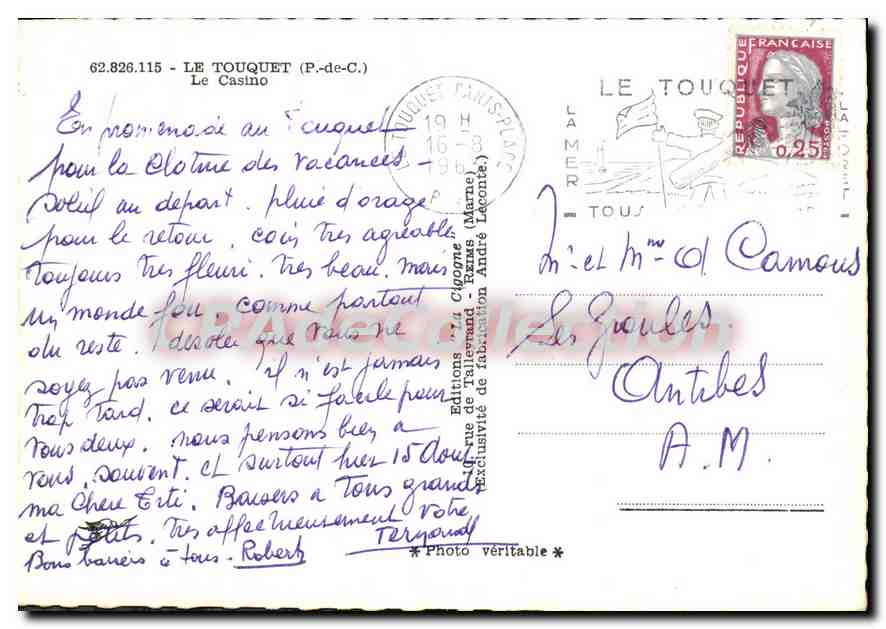 62.826.115 - LE TOUQUET (P.-de-C.)
Le Casino
En promenade au Touquet
pour la Cloture des vacances -
soleil au depart. pluie d'orage
pour le retour. coin tres agréable
toujours tres fleuri. tres beau. mais
un monde fou. comme partout
du reste. desolée que vous ne
soyez pas venu. il n'est jamais
trop tard. ce serait si facile pour
vous deux. nous pensons bien a
vous. souvent. et surtout hier 15 Aout
ma Chere Erti. Baisers a Tous grands
et petits. tres affectueusement votre
Bons baisers à tous - Robert
* Photo véritable *
Editions "La Cigogne"
rue de Talleyrand - REIMS (Marne)
(Exclusivité de fabrication André Leconte.)
TOUQUET-PARIS-PLAGE
19 H
16 - 8
196
LE TOUQUET
LA MER
LA FORET
TOUS
REPUBLIQUE FRANÇAISE
0,25
Mr et Mme d Camous
Les Groules
Antibes
A.M.
CPAdeCollection